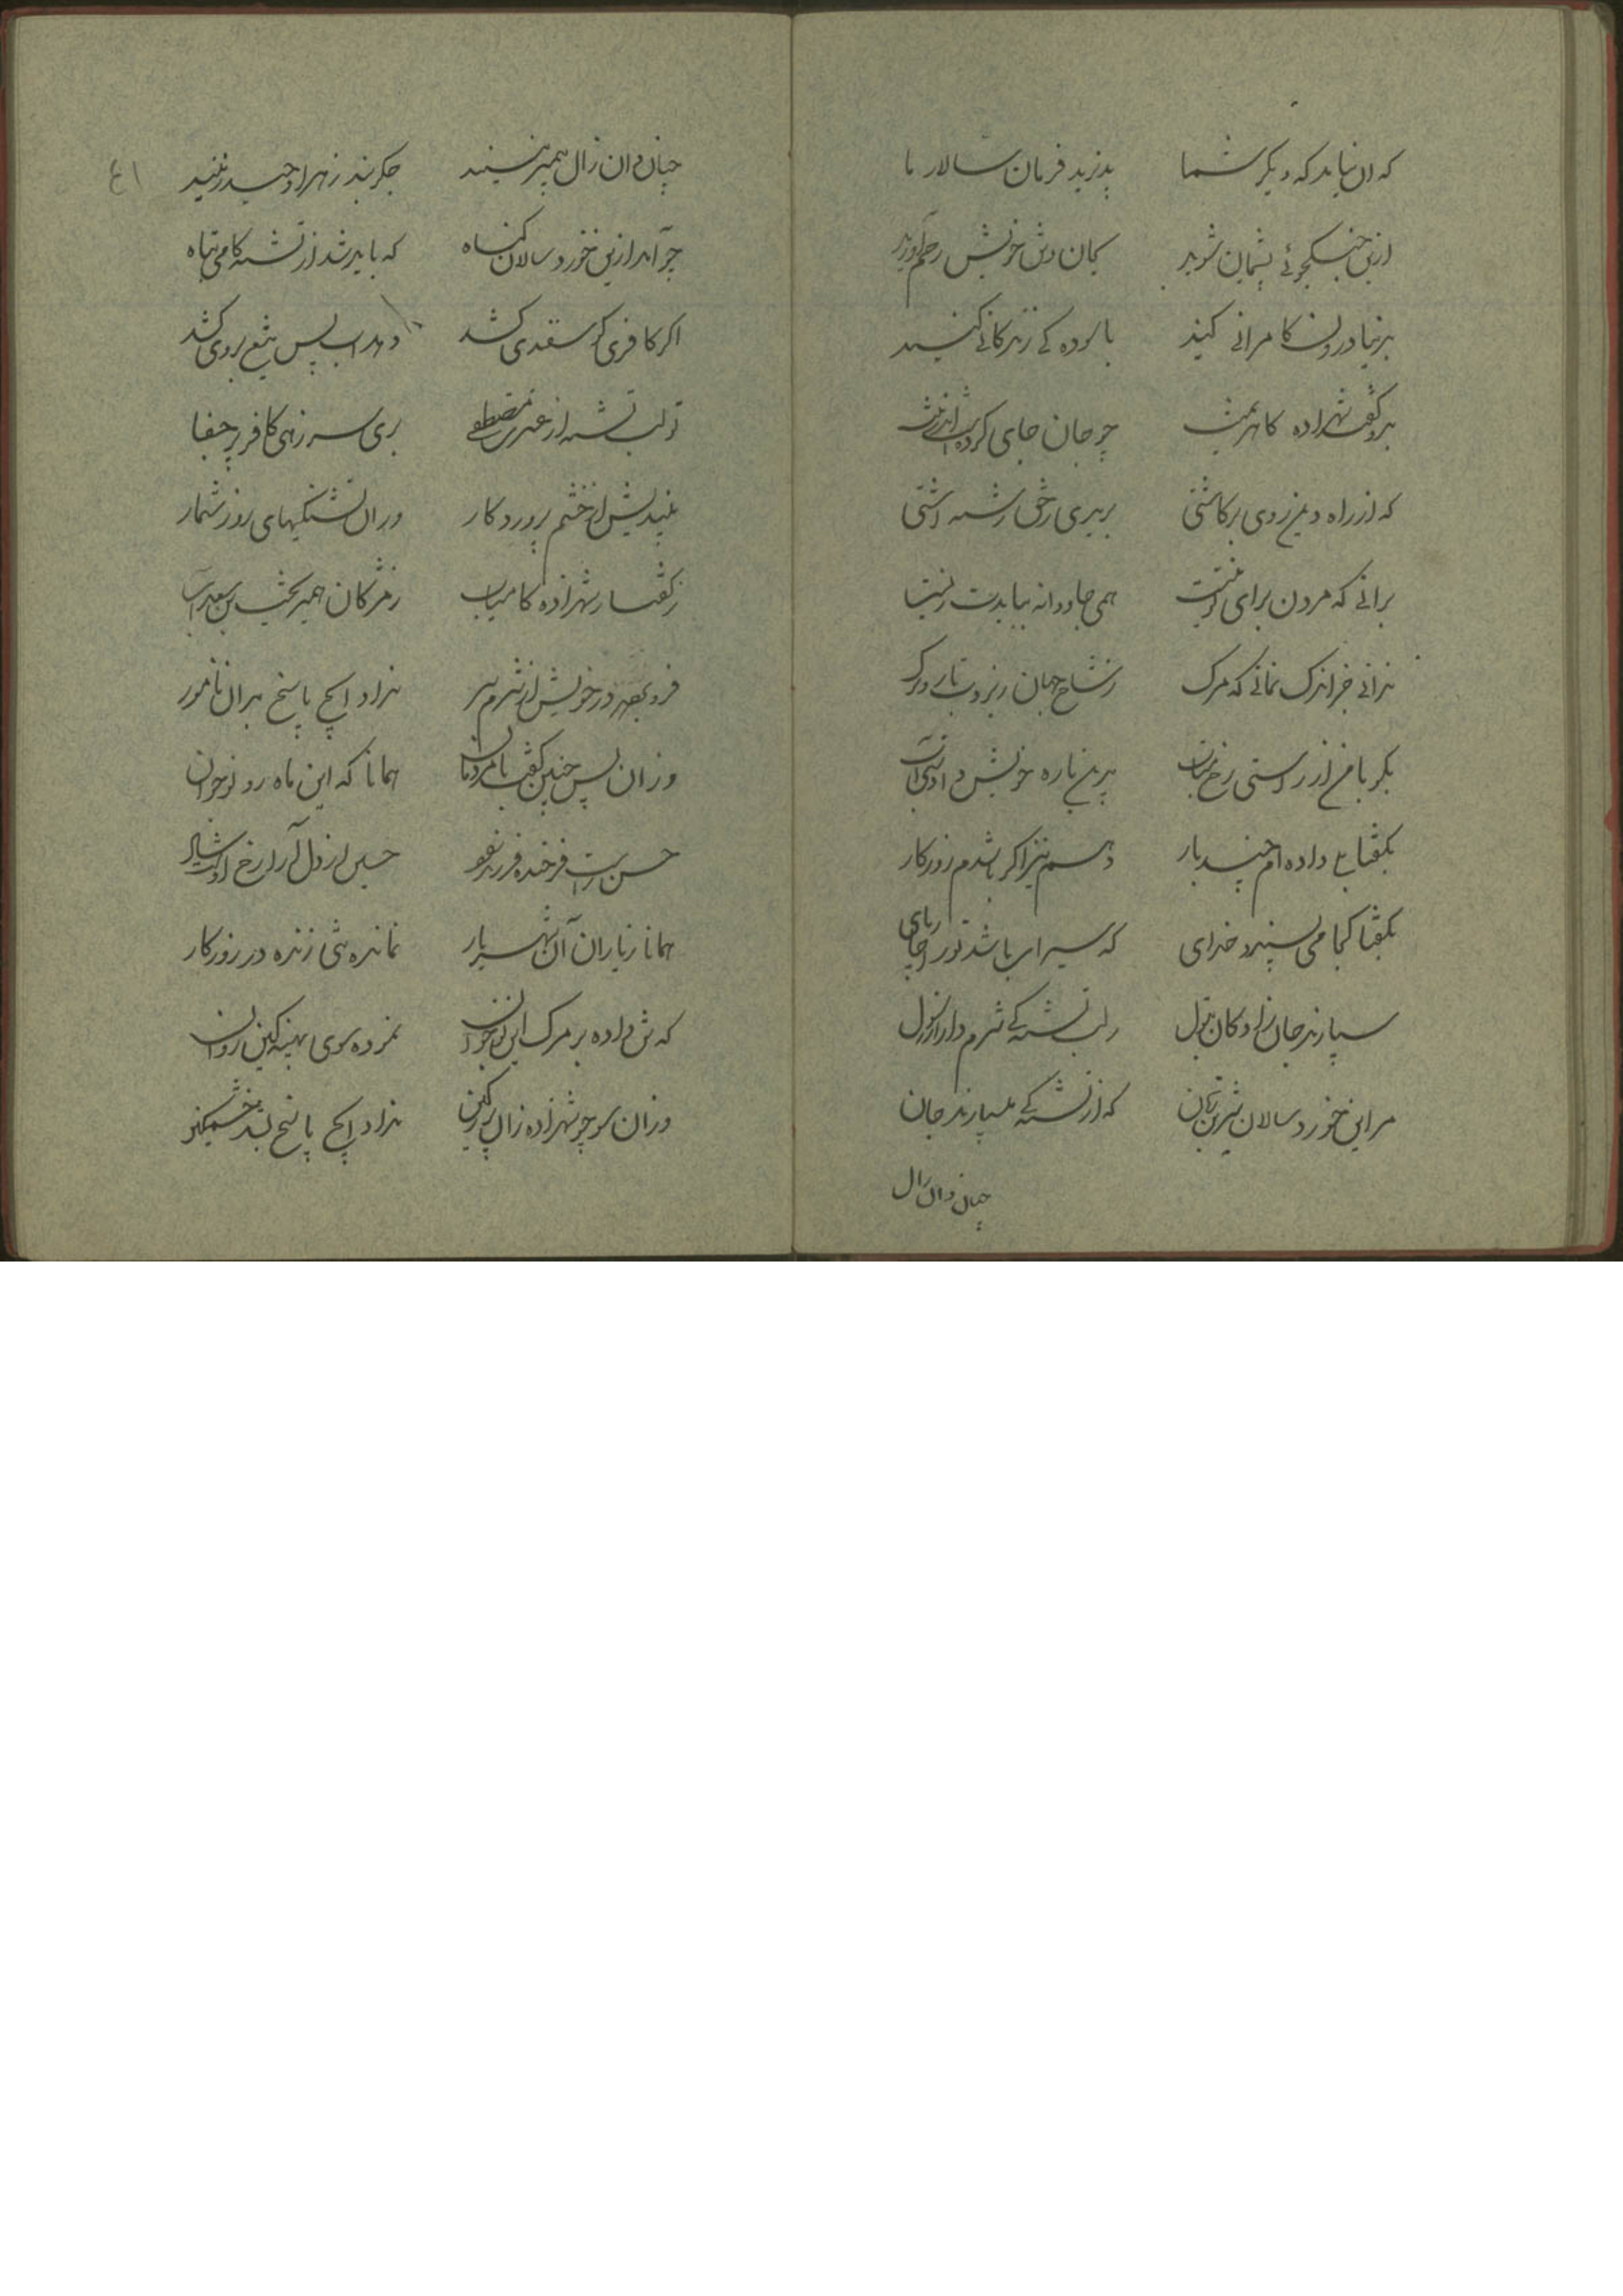 که ان نباید که دیگر شما پذیرید فرمان سالار ما
ازین جنگجوئی پشیمان شوید بجان و تن خویش
بدنیا درون کامرانی کنید باسوده کی زندگانی کنید
بدو گفت شهزاده کاهرمنت چو جان جای کرده است اندر تنت
که از راه دین روی برگاشتی
برانی که مردن برای تو نیست همی جاودانه بباید زیست
ندانی جز اندک نمانی که مرگ ز شاخ جهان ریزدت بار و برگ
بگو با من از راستی رخ متاب
بگفتا بلی داده ام چند بار دهم نیز اگر باشدم روزگار
بگفتا کجا می پسندد خدای که سیراب باشد تو را چارپای
سپارند جان زادگان بتول لب تشنه کی شرم دار از رسول
مر این خورد سالان شیرین زبان که از تشنگی میسپارند جان
چنان دان زال
چنان دان زال پیمبر نیند جگربند زهرا و حیدر نیند
چه آمد ازین خورد سالان گناه که باید شد از تشنه کامی تباه
اگر کافری گوسفندی کشد دهد آب پس تیغ بروی کشد
تو لب تشنه از عترت مصطفی بری سر زهی کافر پر جفا
بیندیش از خشم پروردگار و زان تشنگیهای روز شمار
ز گفتار شهزاده کامیاب ز مژگان همی ریخت بن سعد آب
فرو برد در خویش از شرم سر نداد ایچ پاسخ بدان نامور
وزان پس چنین گفت با مردمان همانا که این ماه رو نوجوان
حسن راست فرخنده فرزند حسین از دل آرا رخ او
همانا ز یاران آن شهریار نمانده تنی زنده در روزگار
که تن داده بر مرگ این نوجوان نموده سوی پهنه کین روان
وزان سو چو شهزاده زان پر ز کین نداد ایچ پاسخ بشد خشمگین
٤١